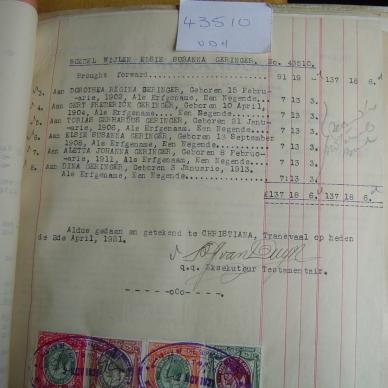 43510
BOEDEL WYLEN ELSIE SUSANNA GERINGER. No. 43510.
Brought forward................ 91 19 - 137 18 6.
3. Aan DOROTHEA REGINA GERINGER, Geboren 15 Febru-
-arie, 1902, Als Erfgename, Een Negende... 7 13 3.
4. Aan GERT FREDERICK GERINGER, Geboren 10 April,
1904, Als Erfgenaam.... Een Negende...... 7 13 3.
5. Aan TOBIAS GERHARDUS GERINGER, Geboren 21 Janu-
-arie, 1906, Als Erfgenaam, Een Negende... 7 13 3.
6. Aan ELSIE SUSANNA GERINGER, Geboren 13 September
1908, Als Erfgename, Een Negende.......... 7 13 3.
7. Aan ALETTA JOHANNA GERINGER, Geboren 8 Februo-
-arie, 1911, Als Erfgenaam, Een Negende... 7 13 3.
8. Aan DINA GERINGER, Geboren 3 Januarie, 1913.
Als Erfgename, Een Negende................ 7:13 3.
£137 18 6. 137 18 6.
Aldus gedaan en geteekend te CHRISTIANA, Transvaal op heden
de 2de April, 1921.
q.q. Eksekuteur Testamentair.
-----oOo-----